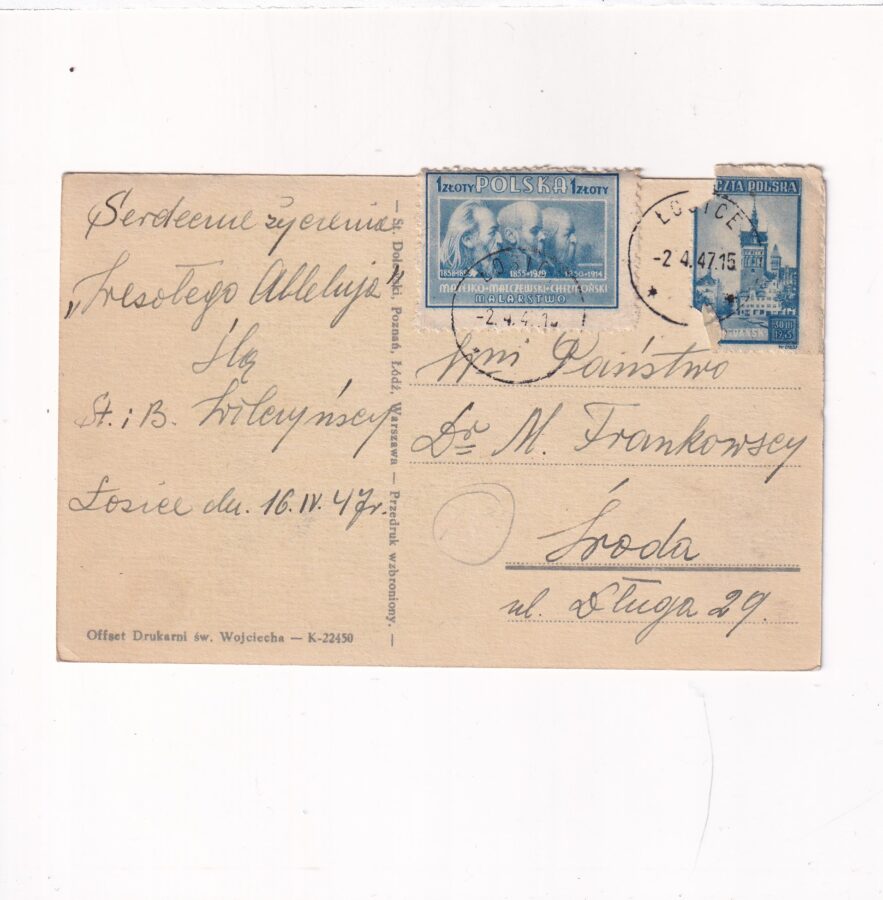 Serdeczne życzenia
„Wesołego Alleluja"
ślą
St. i B. Wilczyńscy
Łosice dn. 16.IV.47r.
Offset Drukarni św. Wojciecha — K-22450
— St. Dolewski, Poznań, Łódź, Warszawa — Przedruk wzbroniony. —
1 ZŁOTY POLSKA 1 ZŁOTY
1855-1929 1850-1914
MATEJKO-MALCZEWSKI-CHEŁMOŃSKI
MALARSTWO
ŁOSICE
-2.4.47.15
CZTA POLSKA
30 III
1945
ŁOSICE
-2.4.47.15
Wni Państwo
Dr M. Frankowscy
Środa
ul. Długa 29.